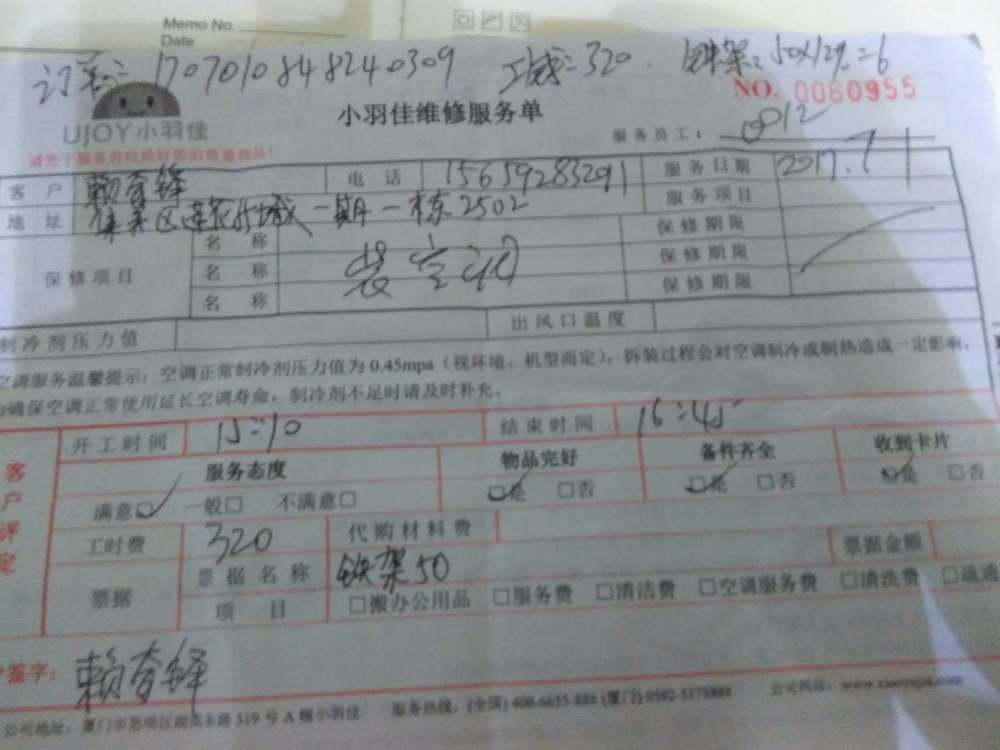 Memo No.
Date
订单: 1707010848240309 工时: 320. 铁架: 50×12%=6
NO. 0060955
小羽佳维修服务单
UJOY小羽佳
服务员工: 0812
请您于服务前收检好您的贵重物品!
客户 电话 15659283291 服务日期 2017.7.1
地址 集美区莲花尚城一期一栋2502 服务项目
保修项目 名称 装空调 保修期限
名称 保修期限
名称 保修期限
制冷剂压力值 出风口温度
空调服务温馨提示: 空调正常制冷剂压力值为 0.45mpa (视环境、机型而定), 拆装过程会对空调制冷或制热造成一定影响,
为确保空调正常使用延长空调寿命, 制冷剂不足时请及时补充。
客户评定
开工时间 15:10 结束时间 16:45
服务态度 物品完好 备件齐全 收到卡片
满意□ 一般□ 不满意□ □是 □否 □是 □否 □是 □否
工时费 320 代购材料费
票据 票据名称 铁架50 票据金额
项目 □搬办公用品 □服务费 □清洁费 □空调服务费 □清洗费 □疏通
签字:
公司地址: 厦门市思明区湖滨东路 319 号 A 幢小羽佳 服务热线: (全国) 400-6655-888 (厦门) 0592-5178888 公司网站: www.xiaoyujia.com